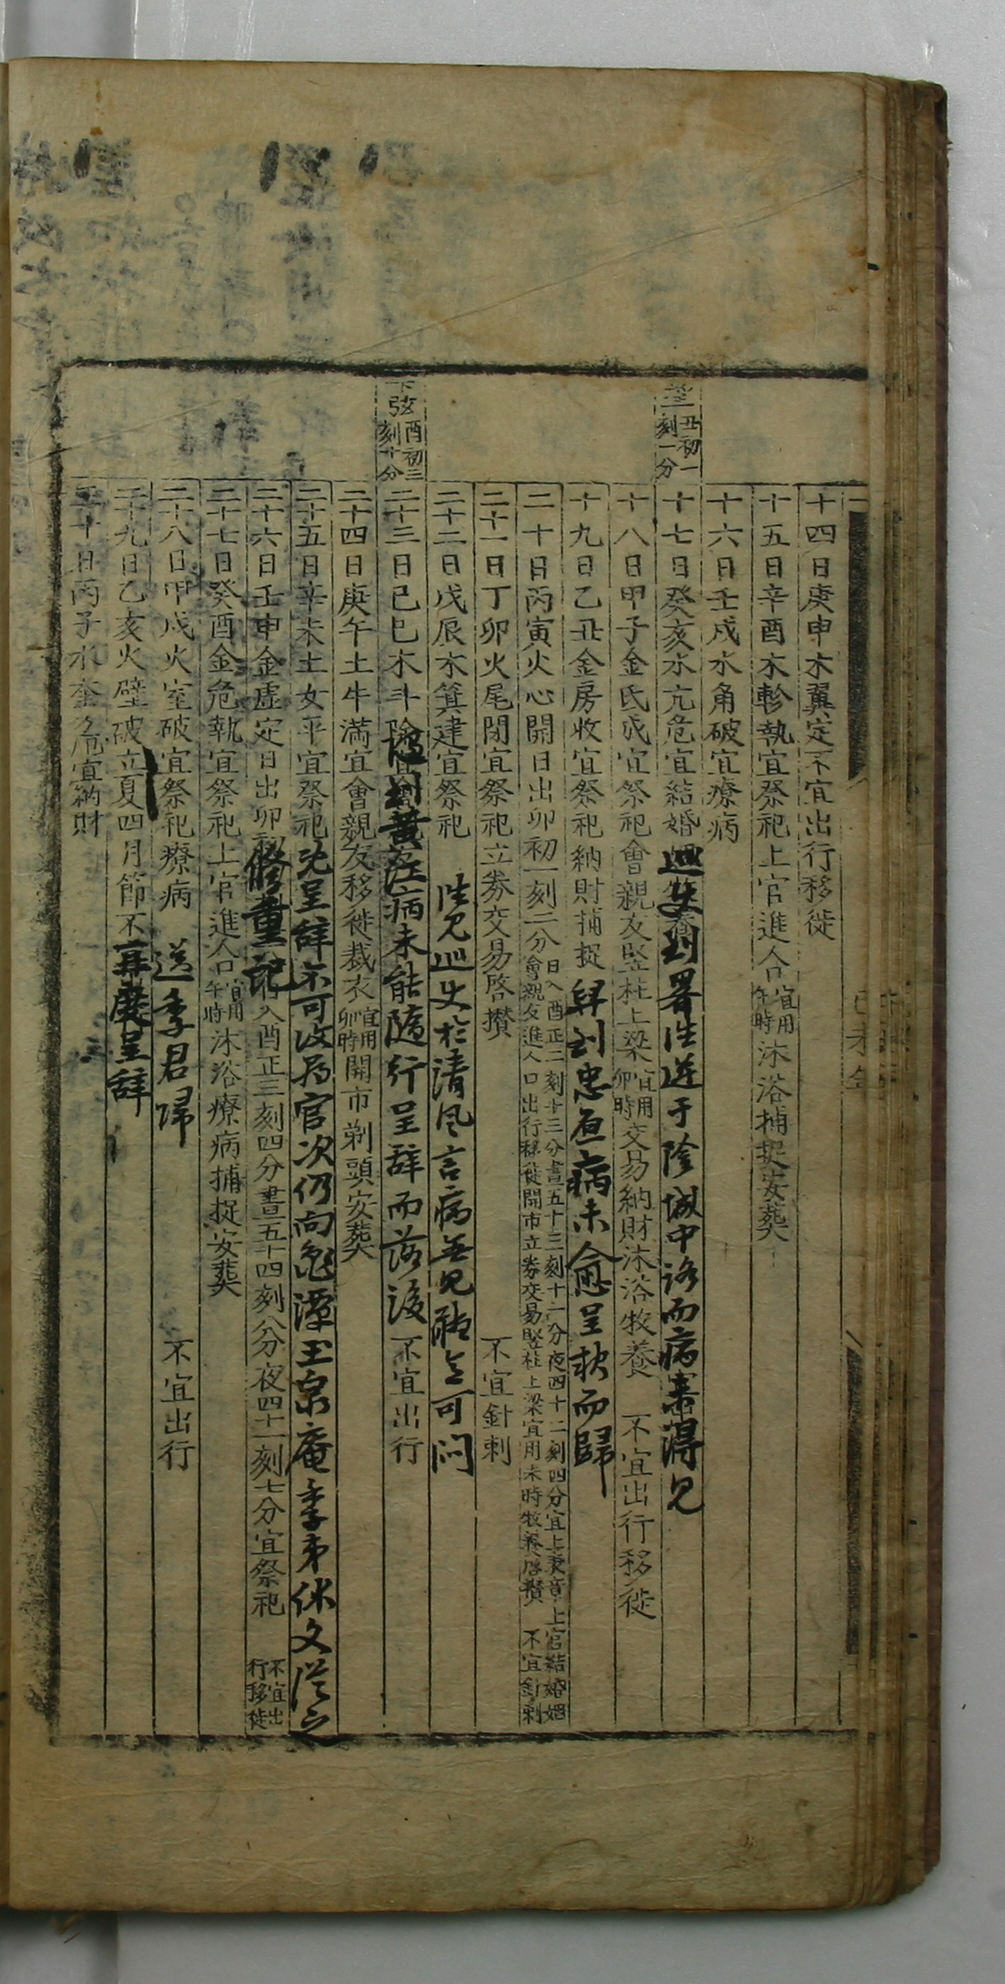 望
丑初一
刻一分
下弦
酉初三
刻十分
十四日庚申木翼定不宜出行移徙
十五日辛酉木軫執宜祭祀上官進人口宜用午時沐浴捕捉安葬
十六日壬戌水角破宜療病
十七日癸亥水亢危宜結婚 巡史到署 于 城中 而病 淂見
十八日甲子金氐成宜祭祀會親友竪柱上梁宜用卯時交易納財沐浴牧養 不宜出行移徙
十九日乙丑金房收宜祭祀納財捕捉 到忠原病未愈呈狀而歸
二十日丙寅火心開日出卯初一刻二分日入酉正二刻十三分晝五十三刻十一分夜四十二刻四分宜上表章上官結婚姻會親友進人口出行移徙開市立券交易竪柱上梁宜用未時牧養啓攢 不宜針刺
二十一日丁卯火尾閉宜祭祀立券交易啓攢 不宜針刺
二十二日戊辰木箕建宜祭祀 巡史於淸風言病 見 可悶
二十三日己巳木斗除 到黃 病未能隨行呈辭而落後 不宜出行
二十四日庚午土牛滿宜會親友移徙裁衣宜用卯時開市剃頭安葬
二十五日辛未土女平宜祭祀 呈辭不可 官次仍向龜潭玉泉庵季弟休文從之
二十六日壬申金虛定日出卯初 修重記 入酉正三刻四分晝五十四刻八分夜四十一刻七分宜祭祀 不宜出行移徙
二十七日癸酉金危執宜祭祀上官進人口宜用午時沐浴療病捕捉安葬
二十八日甲戌火室破宜祭祀療病 送季君歸 不宜出行
二十九日乙亥火壁破立夏四月節不 再度呈辭
三十日丙子水奎危宜納財